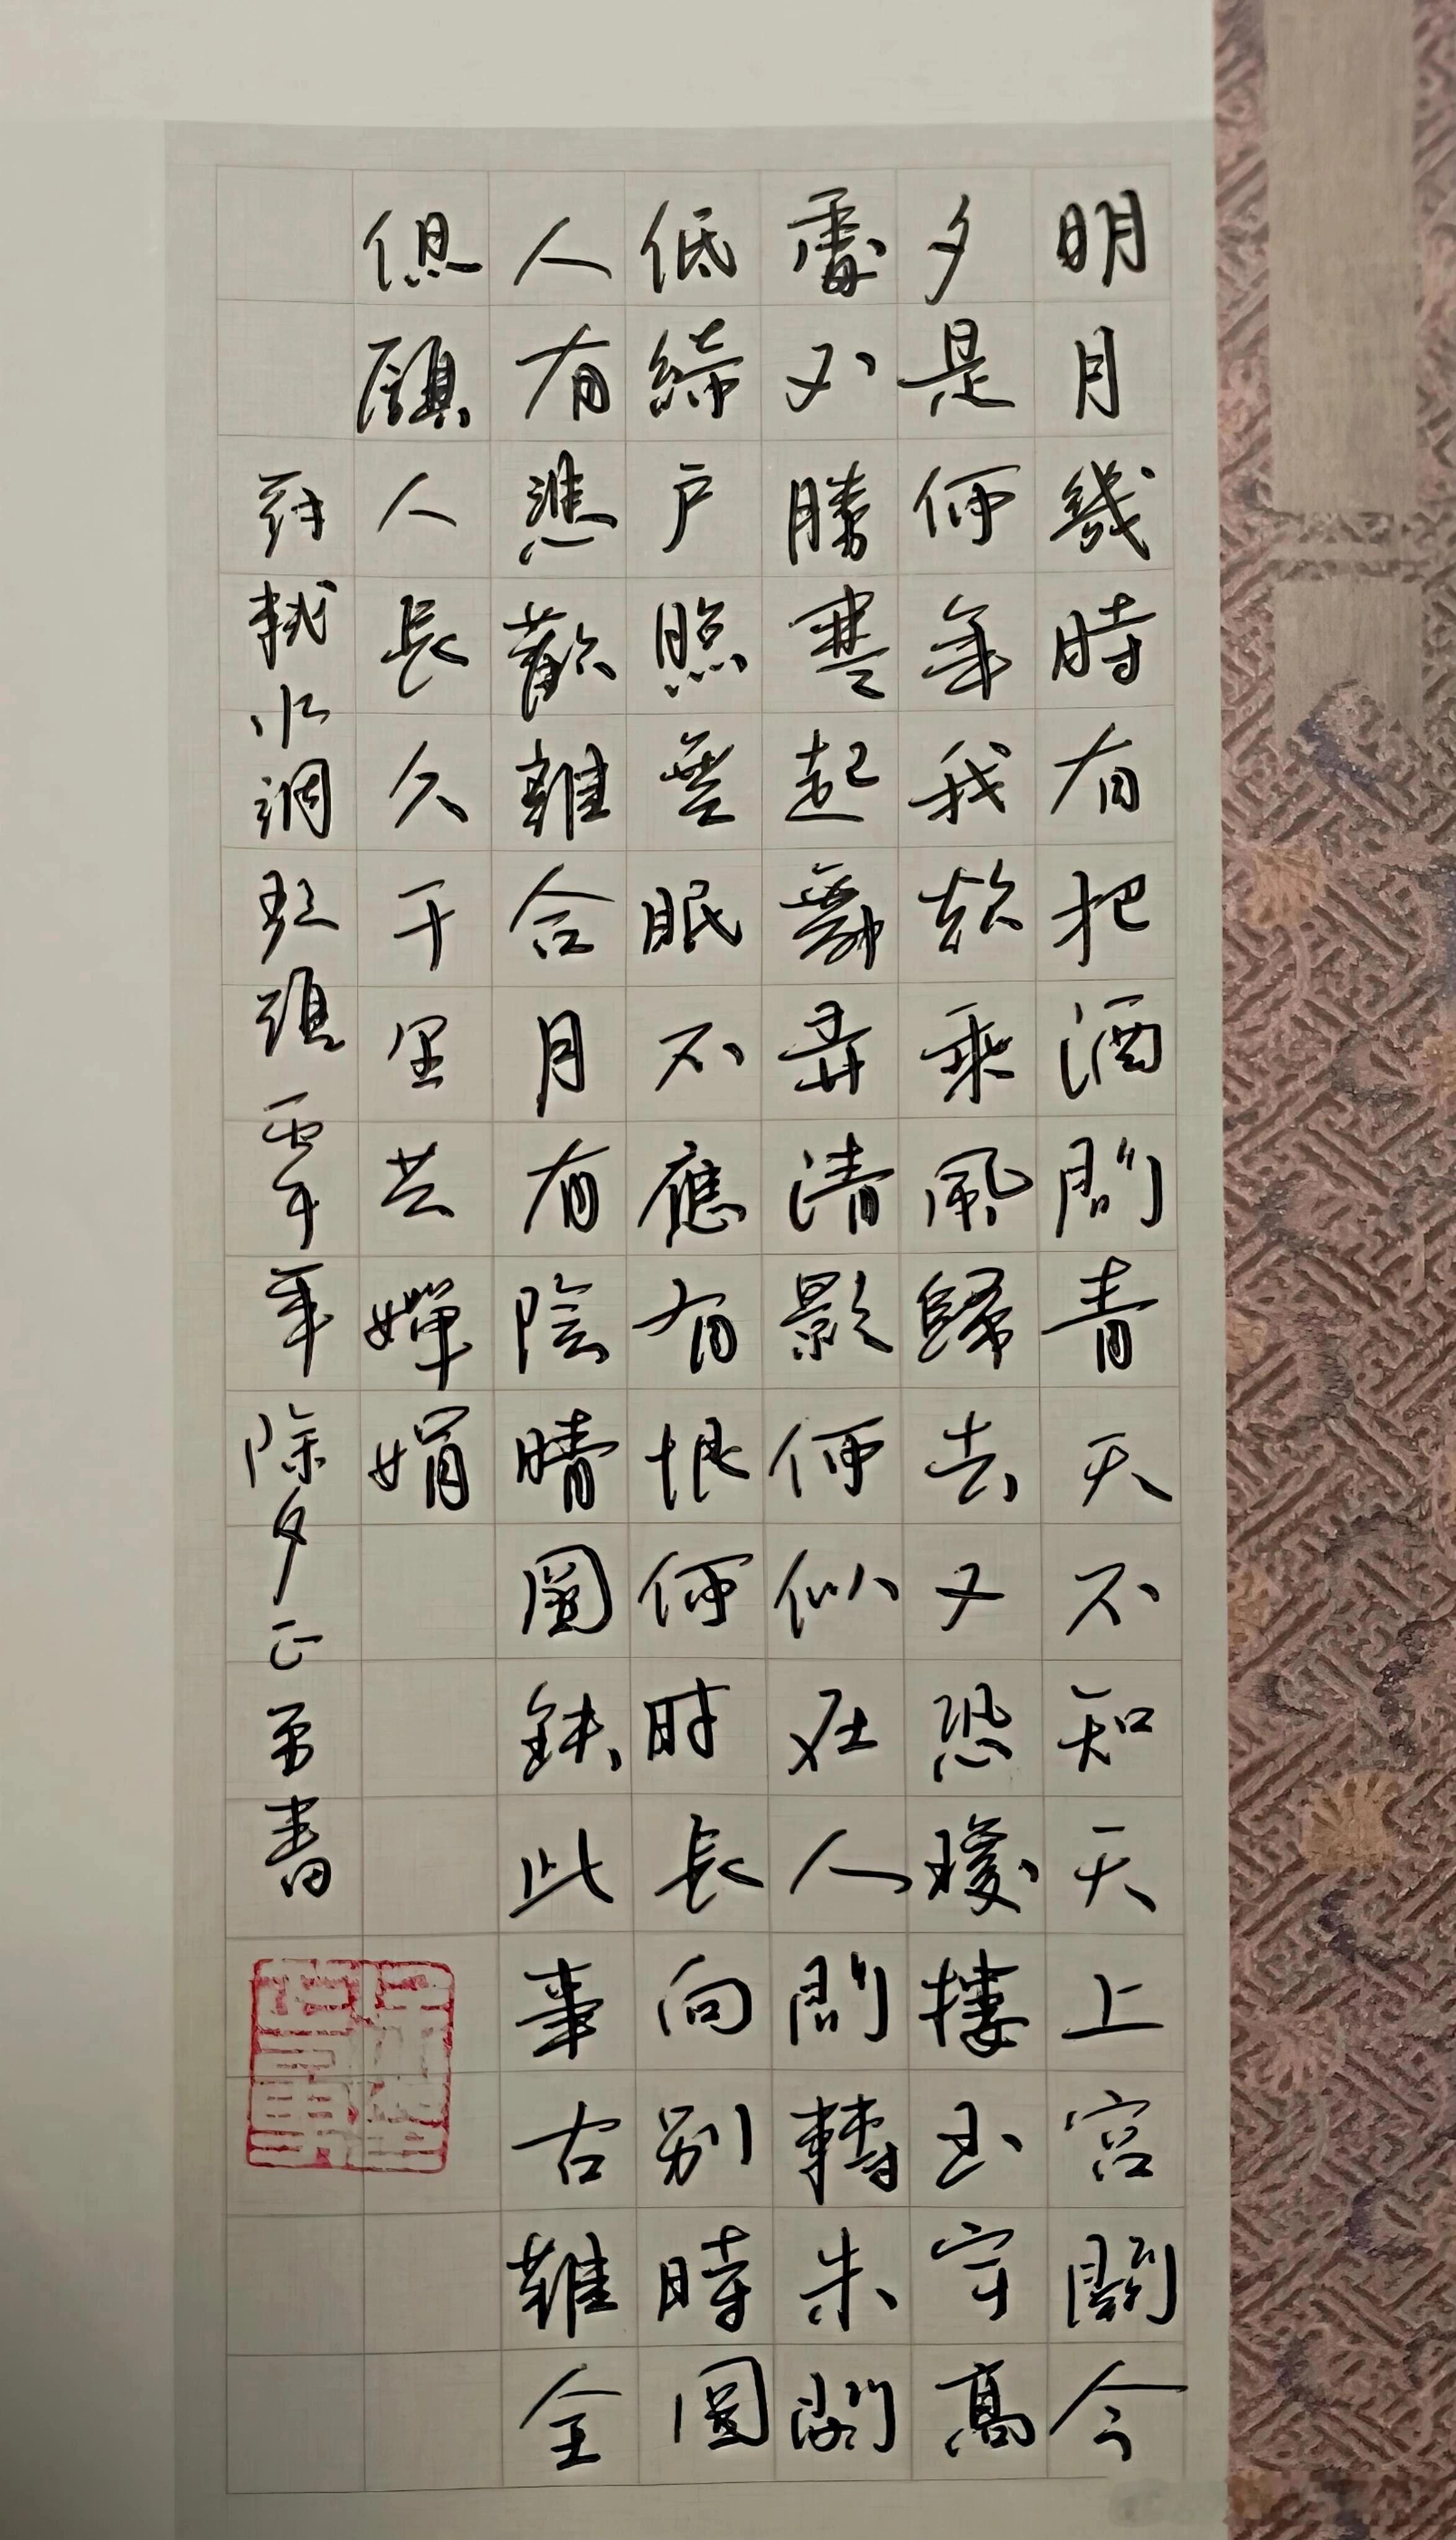 明月幾時有把酒問青天不知天上宮闕今
夕是何年我欲乘風歸去又恐瓊樓玉宇高
處不勝寒起舞弄清影何似在人間轉朱閣
低綺户照無眠不應有恨何时長向別時圓
人有悲歡離合月有陰晴圓缺此事古難全
但願人長久千里共嬋娟
蘇軾水調歌頭年除夕正勇書